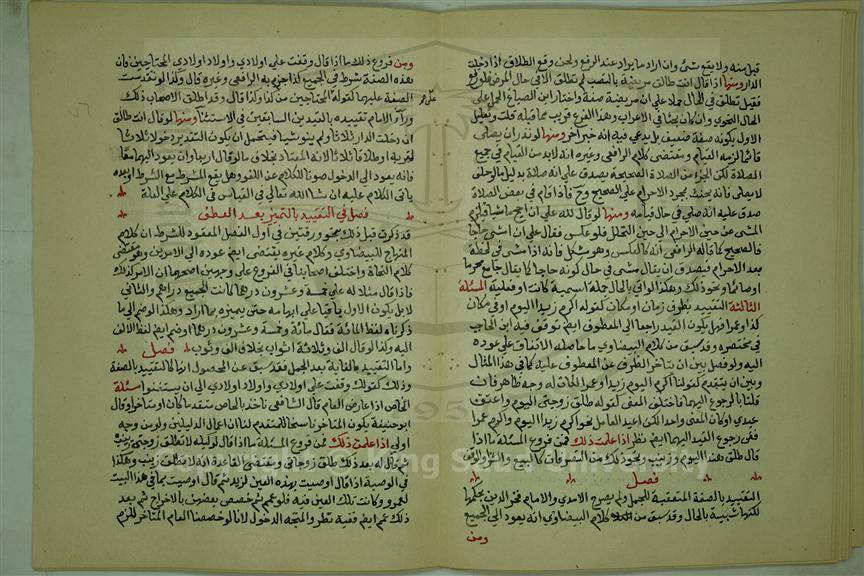 قبل منه ولا يقع شئ وان اراد ما يراد عند الرفع ولحن وقع الطلاق اذا دخلت
الدار ومنها اذا قال انت طالق مريضة بالنصب لم تطلق الا في حال المرض
فقيل تطلق في الحال حملا على ان مريضة صفة واختار ابن الصباغ الحمل على
الحال النحوي وان كان لحنا في الاعراب وهذا الفرع قريب مما قبله قلت وتعليل
الاول بكونه صفة ضعيف بل يدعي فيه انه خبر اخر ومنها لو نذر ان يصلي
قائما لزمه القيام ومقتضى كلام الرافعي وغيره انه لا بد من القيام في جميع
الصلاة لكن الجزء من الصلاة الصحيحة يصدق على انه صلاة بدليل ما لو حلف
لا يصلي فانه يحنث بمجرد الاحرام على الصحيح وح فاذا قام في بعض الصلاة
صدق عليه انه صلى في حال قيامه ومنها لو قال لله علي ان احج ماشيا فيلزم
المشي من حين الاحرام الى حين التحلل فلو عكس فقال علي ان امشي حاجا
فالصحيح كما قاله الرافعي انه كالعكس وهو مشكل فانه اذا مشى في لحظة
بعد الاحرام فيصدق ان يقال مشى في حال كونه حاجا كما يقال جامع محرما
او صائما ونحو ذلك وهكذا لو اتى بالحال جملة اسمية كانت او فعلية المسئلة
الثالثة التقييد بظرف زمان او مكان كقوله اكرم زيدا اليوم او في مكان
كذا وعمرا فهل يكون القيد راجعا الى المعطوف ايضا توقف فيه ابن الحاجب
في مختصره وقد سبق من كلام البيضاوي ما حاصله الاتفاق على عوده
اليه ولو فصل بين ان يتاخر الظرف عن المعطوف عليه كما في هذا المثال
وبين ان يتقدم كقولنا اكرم اليوم زيدا وعمرا لكان له وجه ظاهر فان
قلنا بالرجوع اليهما فاختلف المعنى كقوله طلق زوجتي اليوم واعتق
عبدي او كان المعنى واحدا لكن اعيد العامل نحو اكرم زيدا اليوم واكرم عمرا
ففي رجوع القيد اليهما ايضا نظر اذا علمت ذلك فمن فروع المسئلة ما اذا
قال طلق هندا اليوم وزينب ونحو ذلك من التصرفات كالبيع والشراء والوقف
فصل
التقييد بالصفة المتعقبة للجمل ولم يصرح الامدي والامام فخر الدين بحكمها
لكنها شبيهة بالحال وقد سبق من كلام البيضاوي انه يعود الى الجميع
ومن
ومن فروع ذلك ما اذا قال وقفت على اولادي واولاد اولادي المحتاجين فان
هذه الصفة شرط في الجميع كذا جزم به الرافعي وغيره قال وكذا لو تقدمت
الصفة عليهما كقوله المحتاجين من كذا وكذا قال وقد اطلق الاصحاب ذلك
وراى الامام تقييده بالقيدين السابقين في الاستثنا ومنها لو قال انت طالق
ان دخلت الدار ثلاثا ولم ينو شيا فيحتمل ان يكون التقدير دخولا ثلاثا
لقربه او طلاقا ثلاثا لانه المعتاد بخلاف ما لو قال اربعا وان يعود اليهما معا
فانه يعود الى الدخول صونا للكلام عن اللغو وهل يقع المشروط مع الشرط او بعده
ياتي الكلام عليه ان شاء الله تعالى في القياس في الكلام على العلة
فصل في التقييد بالتمييز بعد العطف
قد ذكرت قبل ذلك بنحو ورقتين في اول الفصل المعقود للشرط ان كلام
المنهاج للبيضاوي وكلام غيره يقتضي ايضا عوده الى الامرين وهو مقتضى
كلام النحاة واختلف اصحابنا في الفروع على وجهين اصحهما ان الامر كذلك
فاذا قال مثلا له علي خمسة وعشرون درهما كانت الجميع دراهم والثاني
لا بل يكون الاول باقيا على ابهامه حتى يميزه بما اراد وهكذا لو ضم الى ما
ذكرناه لفظ المائة فقال مائة وخمسة وعشرون درهما او ضم ايضا لفظ الالف
اليه وكذا لو قال الف وثلاثة اثواب بخلاف الف وثوب فصل
واما التقييد بالغاية بعد الجمل فقد سبق عن المحصول انها كالتقييد بالصفة
وذلك كقولك وقفت على اولادي واولاد اولادي الى ان يستغنوا مسئلة
الخاص اذا عارض العام قال الشافعي ناخذ بالخاص متقدما كان او متاخرا وقال
ابو حنيفة يكون المتاخر ناسخا للمتقدم لنا اعمال الدليلين ولو من وجه
اولى اذا علمت ذلك فمن فروع المسئلة ما اذا قال لوكيله لا تطلق زوجتي زينب
ثم قال له بعد ذلك طلق زوجاتي ومقتضى القاعدة انه لا تطلق زينب وهكذا
في الوصية اذا قال اوصيت بهذه العين لزيد ثم قال اوصيت بما في هذا البيت
لعمرو وكانت تلك العين فيه فلو عمم ثم خصص بعضهن بالاخراج ثم بعد
ذلك عم ايضا ففيه نظر والمتجه الدخول لانا لو خصصنا العام المتاخر للزم